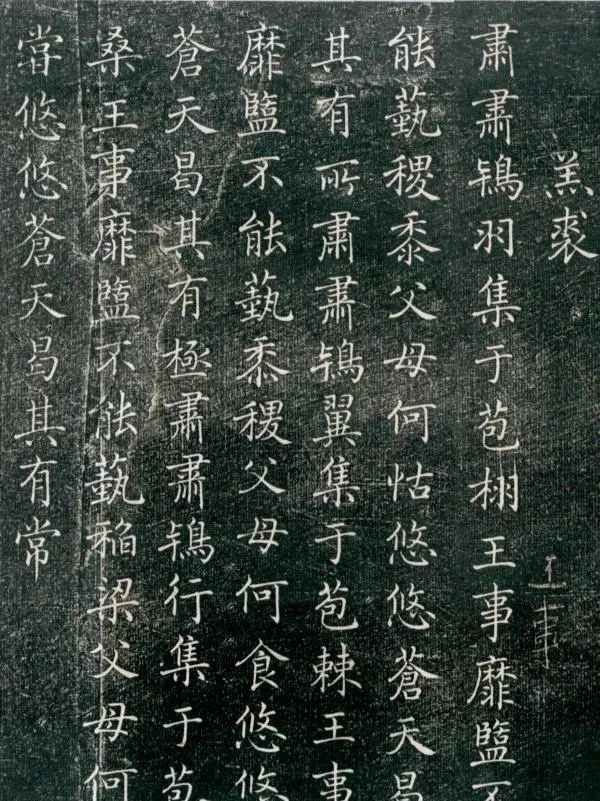 羔裘
王事
肅肅鴇羽集于苞栩王事靡盬不
能蓺稷黍父母何怙悠悠蒼天曷
其有所肅肅鴇翼集于苞棘王事
靡盬不能蓺黍稷父母何食悠悠
蒼天曷其有極肅肅鴇行集于苞
桑王事靡盬不能蓺稻梁父母何
甞悠悠蒼天曷其有常